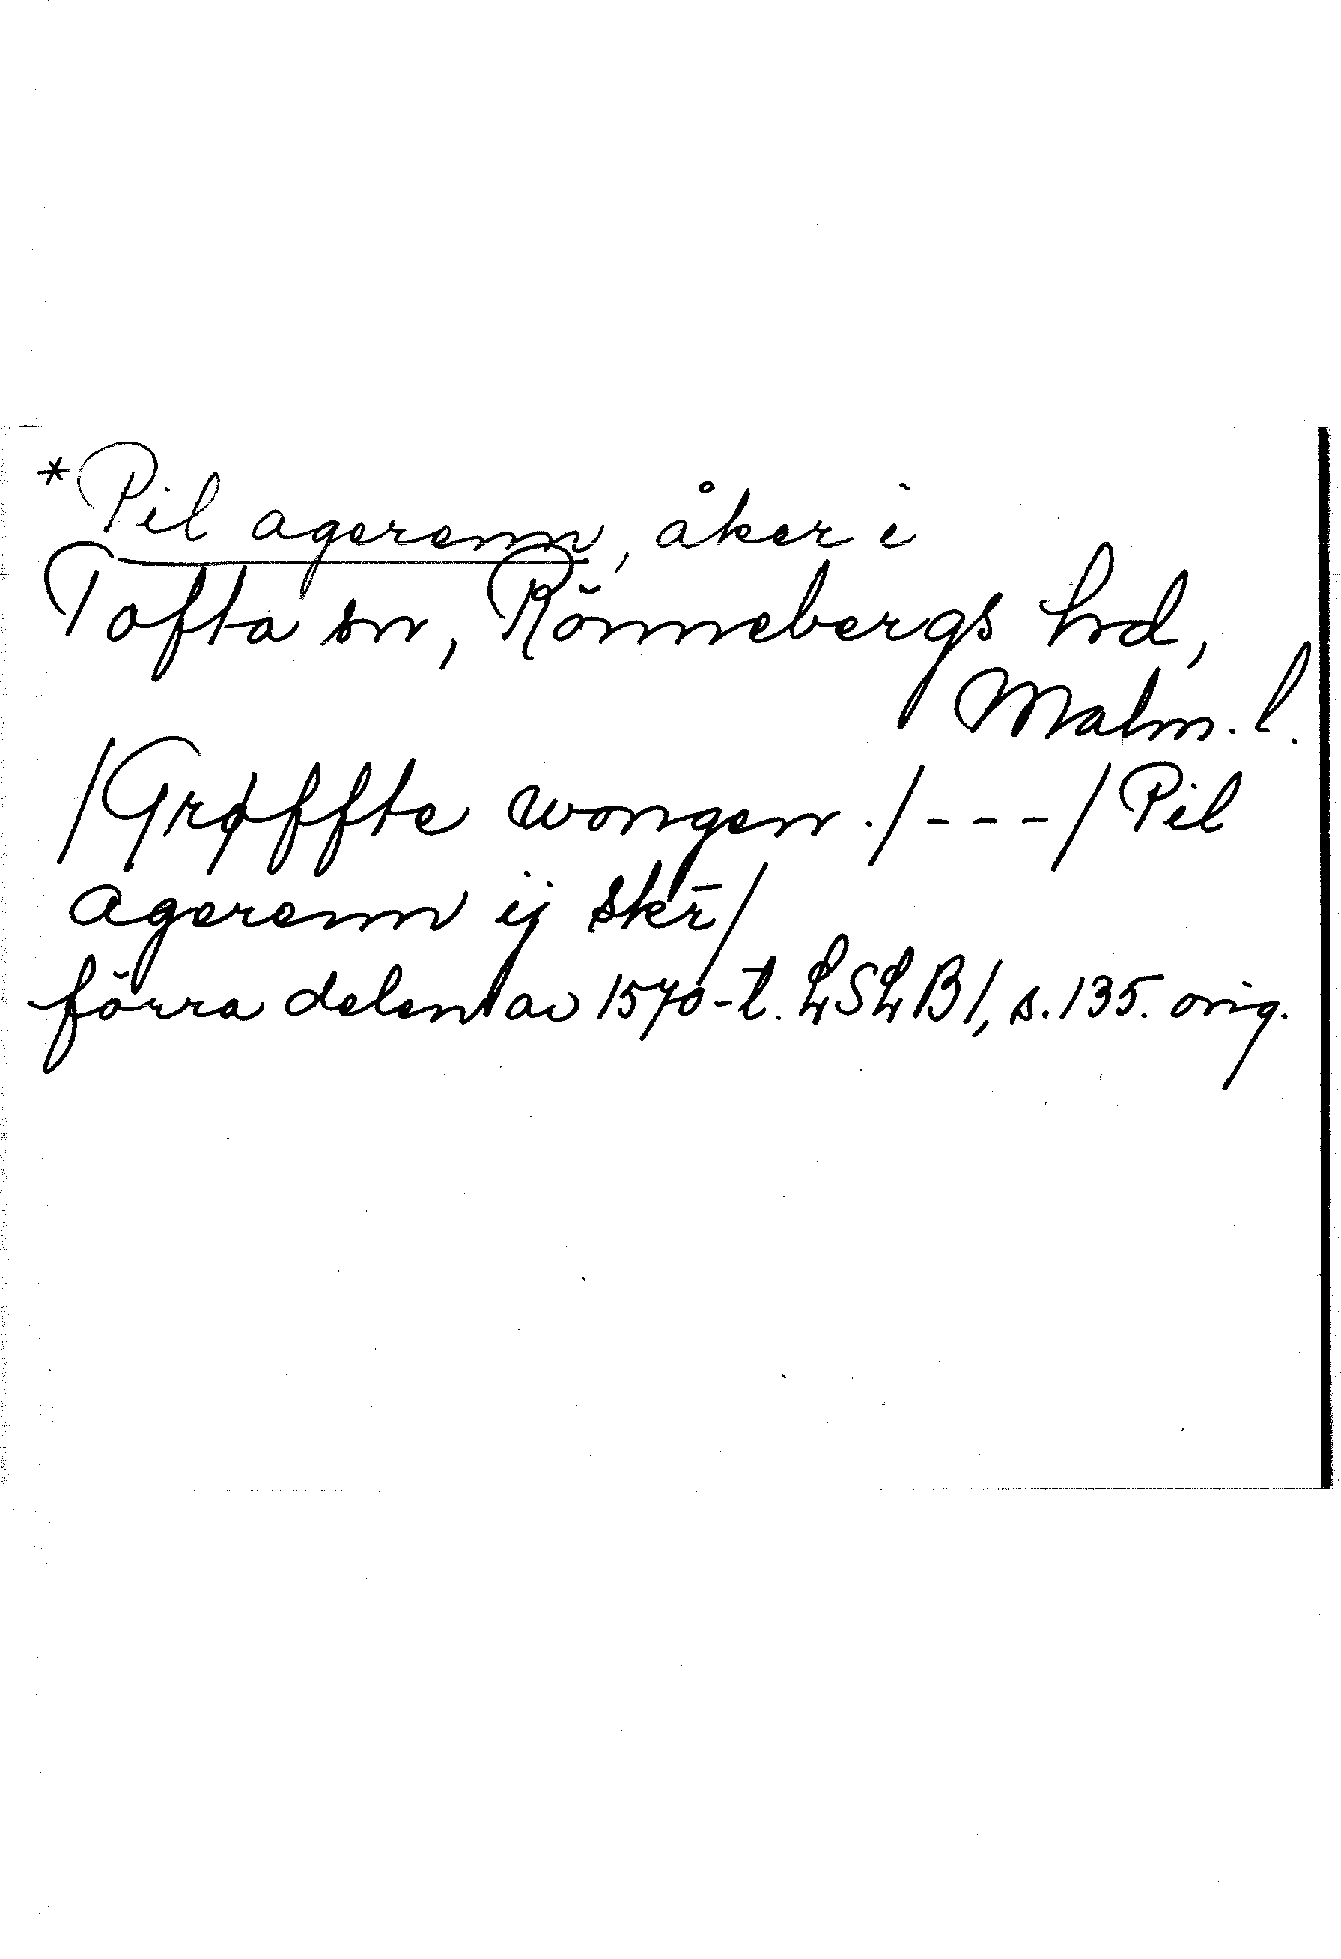 *Pil agerenn, åker i
Tofta sn, Rönnebergs hd,
Malm. l.
/Grøffte wongen./---/Pil
agerenn ij skr̄/
förra delen av 1570-t. LSLB1, s. 135. orig.